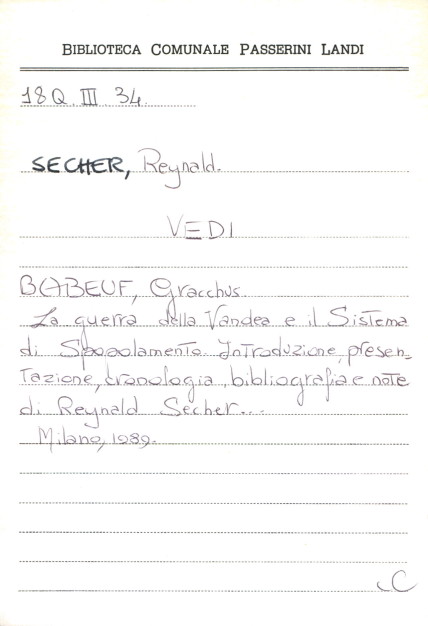 BIBLIOTECA COMUNALE PASSERINI LANDI
18Q. III 34.
SECHER, Reynald.
VEDI
BABEUF, Gracchus
La guerra della Vandea e il Sistema
di Spopolamento. Introduzione, presen-
tazione, cronologia, bibliografia e note
di Reynald Secher...
Milano, 1989.
C